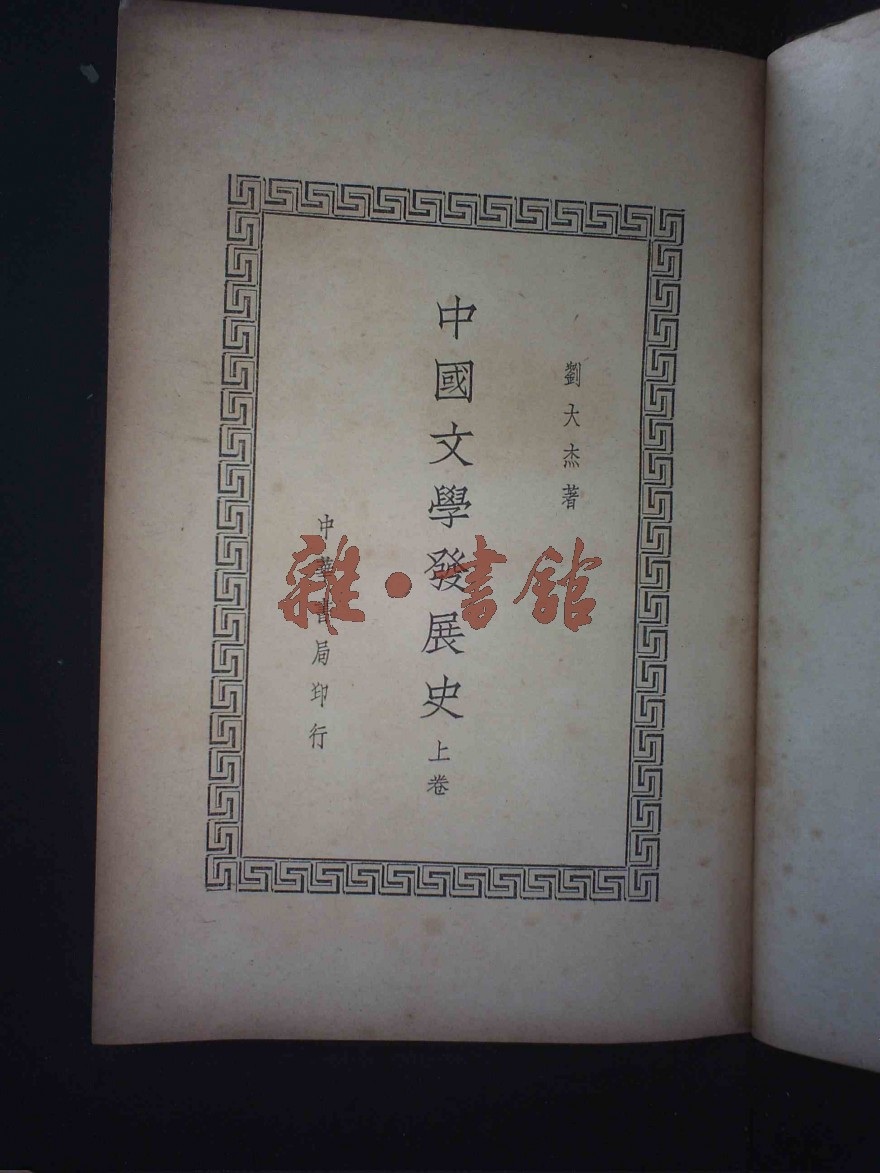 劉大杰著
中國文學發展史上卷
中華書局印行
雜·書館